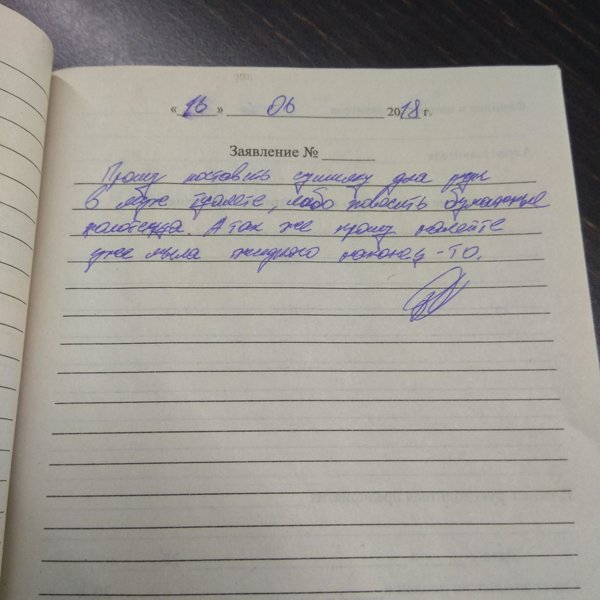 « 16 » 06 2018 г.
Заявление №
Прошу поставить сушилку для рук
в муж туалете, либо повесить бумажные
полотенца. А так же прошу налейте
уже мыла жидкого наконец-то.